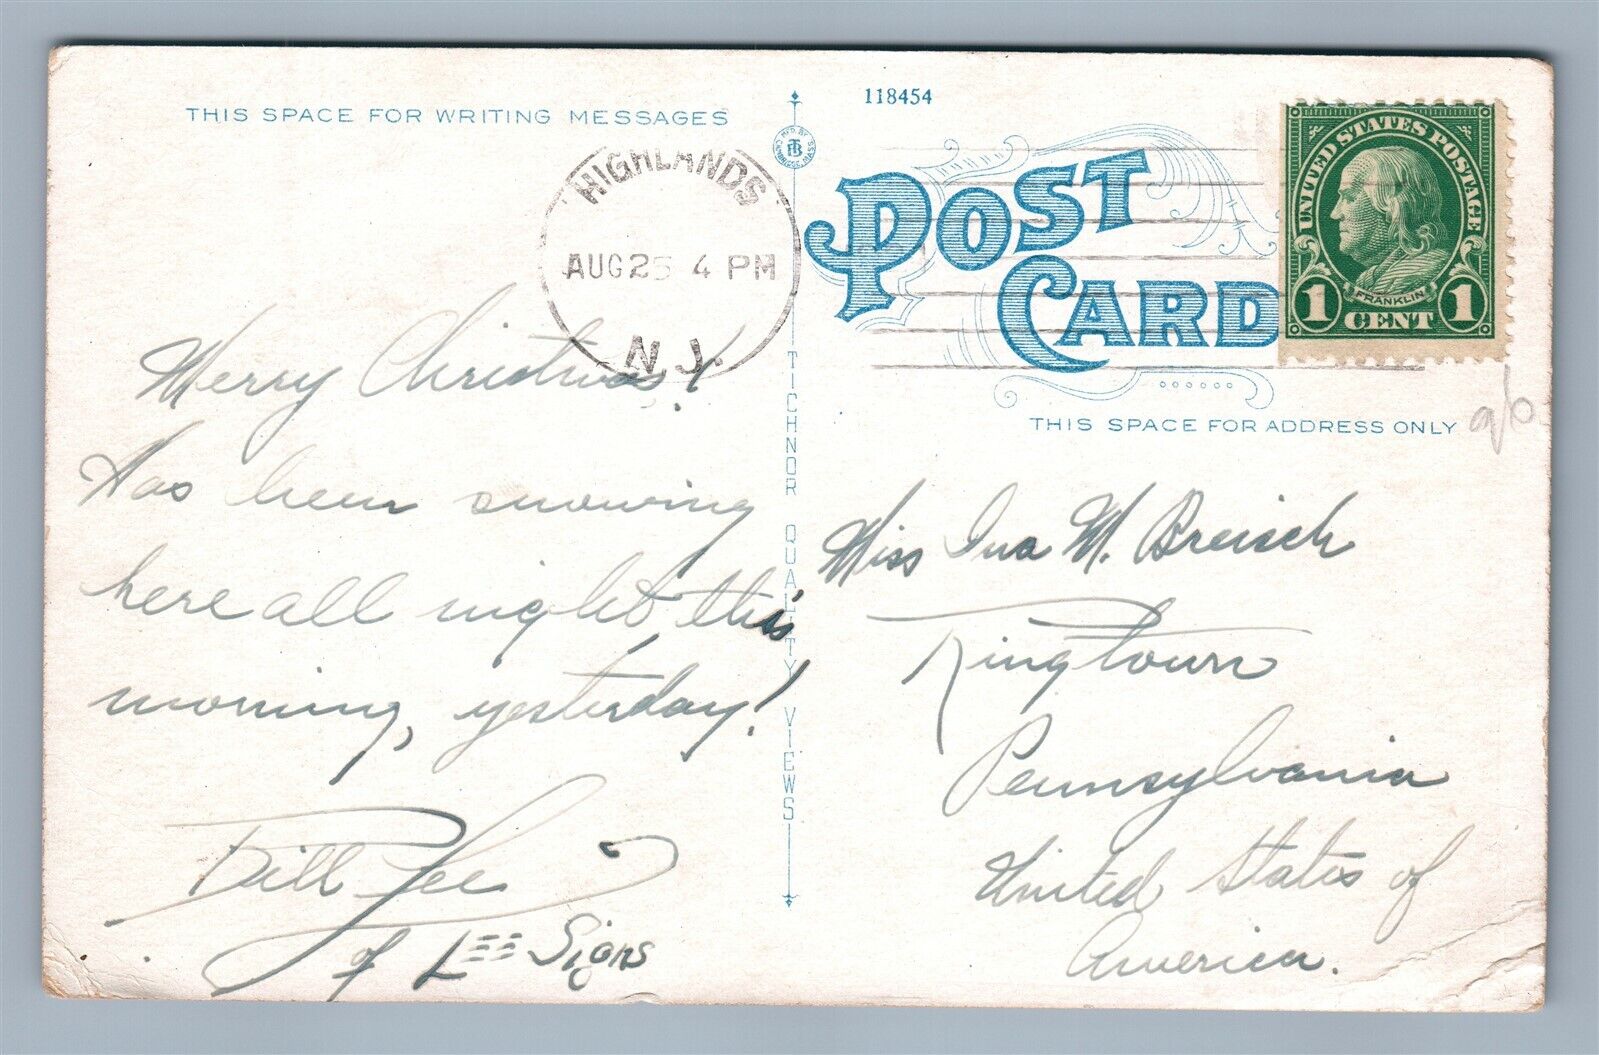 THIS SPACE FOR WRITING MESSAGES
118454
MF'D BY
TB
CAMBRIDGE, MASS.
POST
CARD
UNITED STATES POSTAGE
FRANKLIN
1 CENT 1
HIGHLANDS
AUG 25 4 PM
N.J.
THIS SPACE FOR ADDRESS ONLY
Merry Christmas!
Has been snowing
here all night this
morning, yesterday!
Bill Lee
of LEE Signs
TICHNOR QUALITY VIEWS
Miss Ina M. Breisch
Ringtown
Pennsylvania
United States of
America.